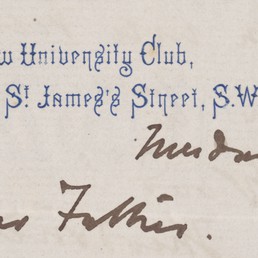 w University Club,
St James's Street, S.W
Father.